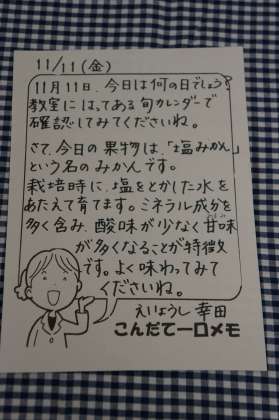 11/11(金)
11月11日、今日は何の日でしょう?
教室にはってある旬カレンダーで
確認してみてくださいね。
さて、今日の果物は、「塩みかん」
という名のみかんです。
栽培時に、塩をとかした水を
あたえて育てます。ミネラル成分を
多く含み、酸味が少なく甘味
が多くなることが特徴
です。よく味わってみて
くださいね。
えいようし 幸田
こんだて一口メモ